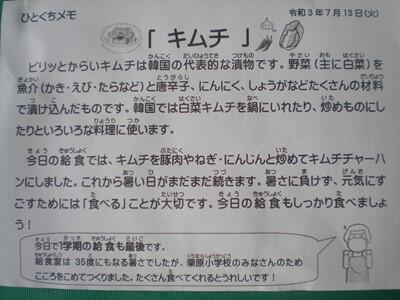 ひとくちメモ
令和3年7月13日(火)
「 キムチ 」
ピリッとからいキムチは韓国の代表的な漬物です。野菜(主に白菜)を
魚介(かき・えび・たらなど)と唐辛子、にんにく、しょうがなどたくさんの材料
で漬け込んだものです。韓国では白菜キムチを鍋にいれたり、炒めものにし
たりといろいろな料理に使います。
今日の給食では、キムチを豚肉やねぎ・にんじんと炒めてキムチチャーハ
ンにしました。これから暑い日がまだまだ続きます。暑さに負けず、元気にす
ごすためには「食べる」ことが大切です。今日の給食もしっかり食べましょ
う！
今日で1学期の給食も最後です。
給食室は 35度にもなる暑さでしたが、栗原小学校のみなさんのため
にこころをこめてつくりました。たくさん食べてくれるとうれしいです！